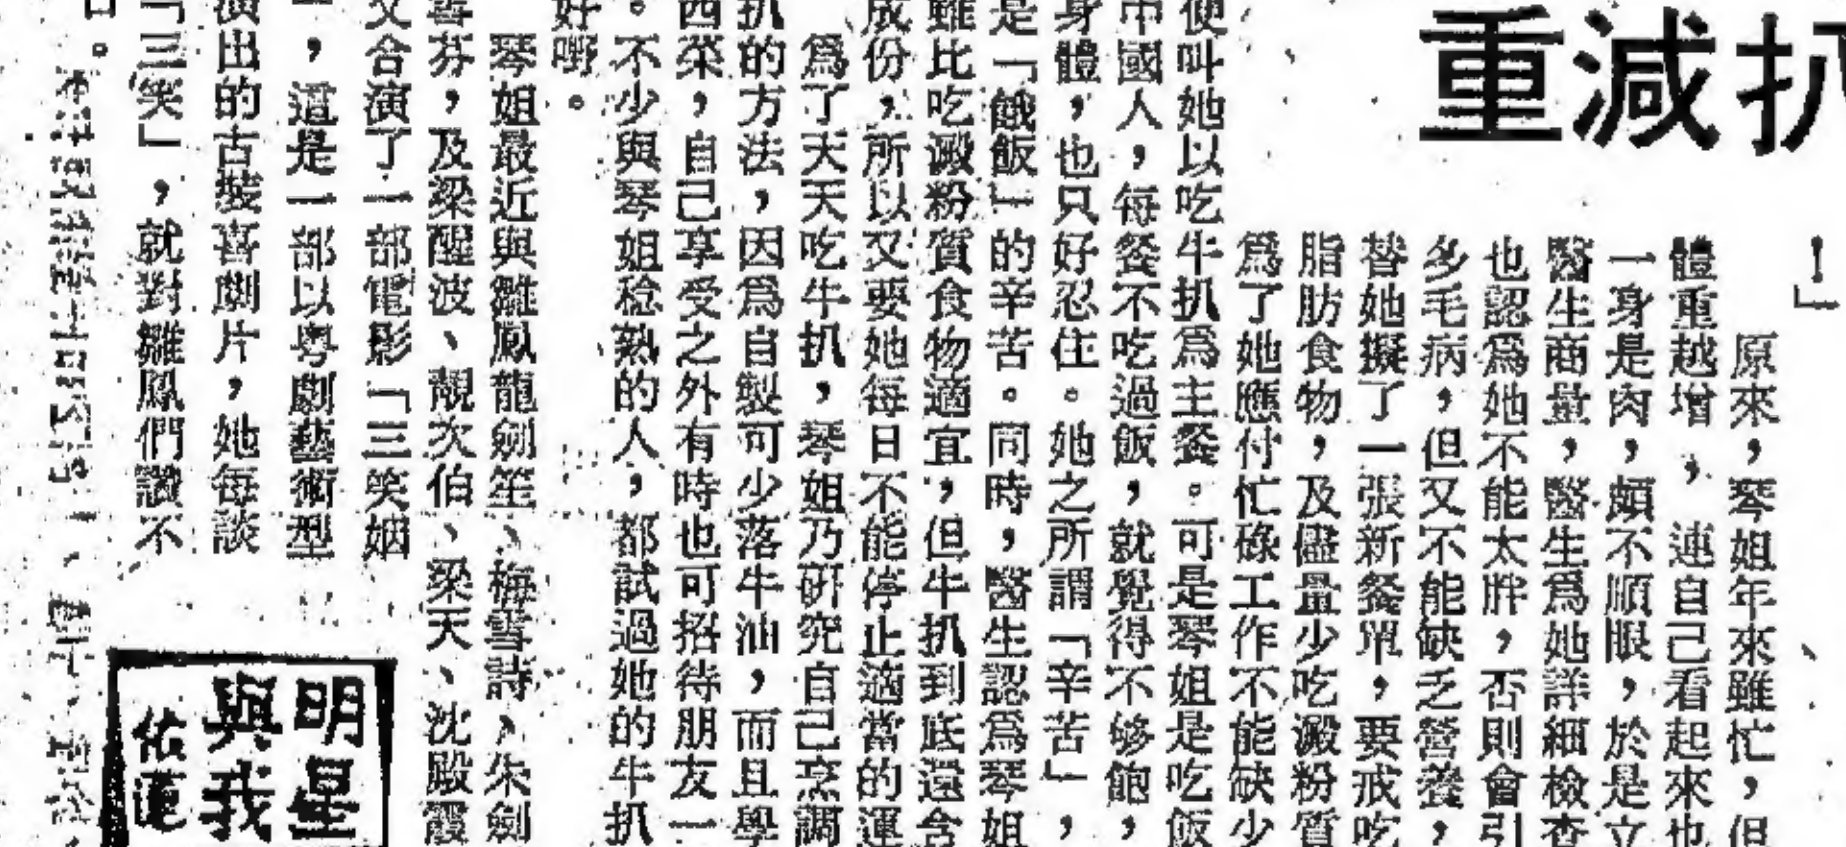 扒減重
！」
原來，琴姐年來雖忙，但
體重越增，連自己看起來也
一身是肉，頗不順眼，於是立
醫生商量，醫生爲她詳細檢查
也認爲她不能太胖，否則會引
多毛病，但又不能缺乏營養，
替她擬了一張新餐單，要戒吃
脂肪食物，及儘量少吃澱粉質
爲了她應付忙碌工作不能缺少
便叫她以吃牛扒爲主餐。可是琴姐是吃飯
中國人，每餐不吃過飯，就覺得不够飽，
身體，也只好忍住。她之所謂「辛苦」，
是「餓飯」的辛苦。同時，醫生認爲琴姐
雖比吃澱粉質食物適宜，但牛扒到底還含
成份，所以又要她每日不能停止適當的運
爲了天天吃牛扒，琴姐乃研究自己烹調
扒的方法，因爲自製可少落牛油，而且學
西菜，自己享受之外有時也可招待朋友一
。不少與琴姐稔熟的人，都試過她的牛扒
好嘢。
琴姐最近與雛鳳龍劍笙、梅雪詩、朱劍
善芬，及梁醒波、靚次伯、梁天、沈殿霞
又合演了一部電影「三笑姻
，這是一部以粤劇藝術型
演出的古裝喜劇片，她每談
「三笑」，就對雛鳳們讚不
。
明星
與我